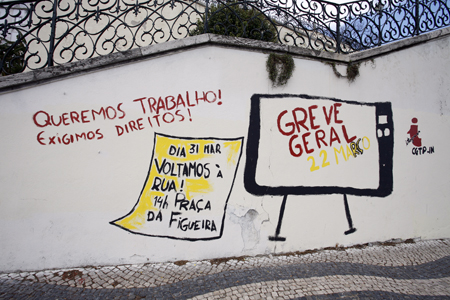 QUEREMOS TRABALHO!
EXIGIMOS DIREITOS!
DIA 31 MAR
VOLTAMOS À
RUA!
14h PRAÇA
DA FIGUEIRA
GREVE
GERAL
22 MARÇO
CGTP-IN